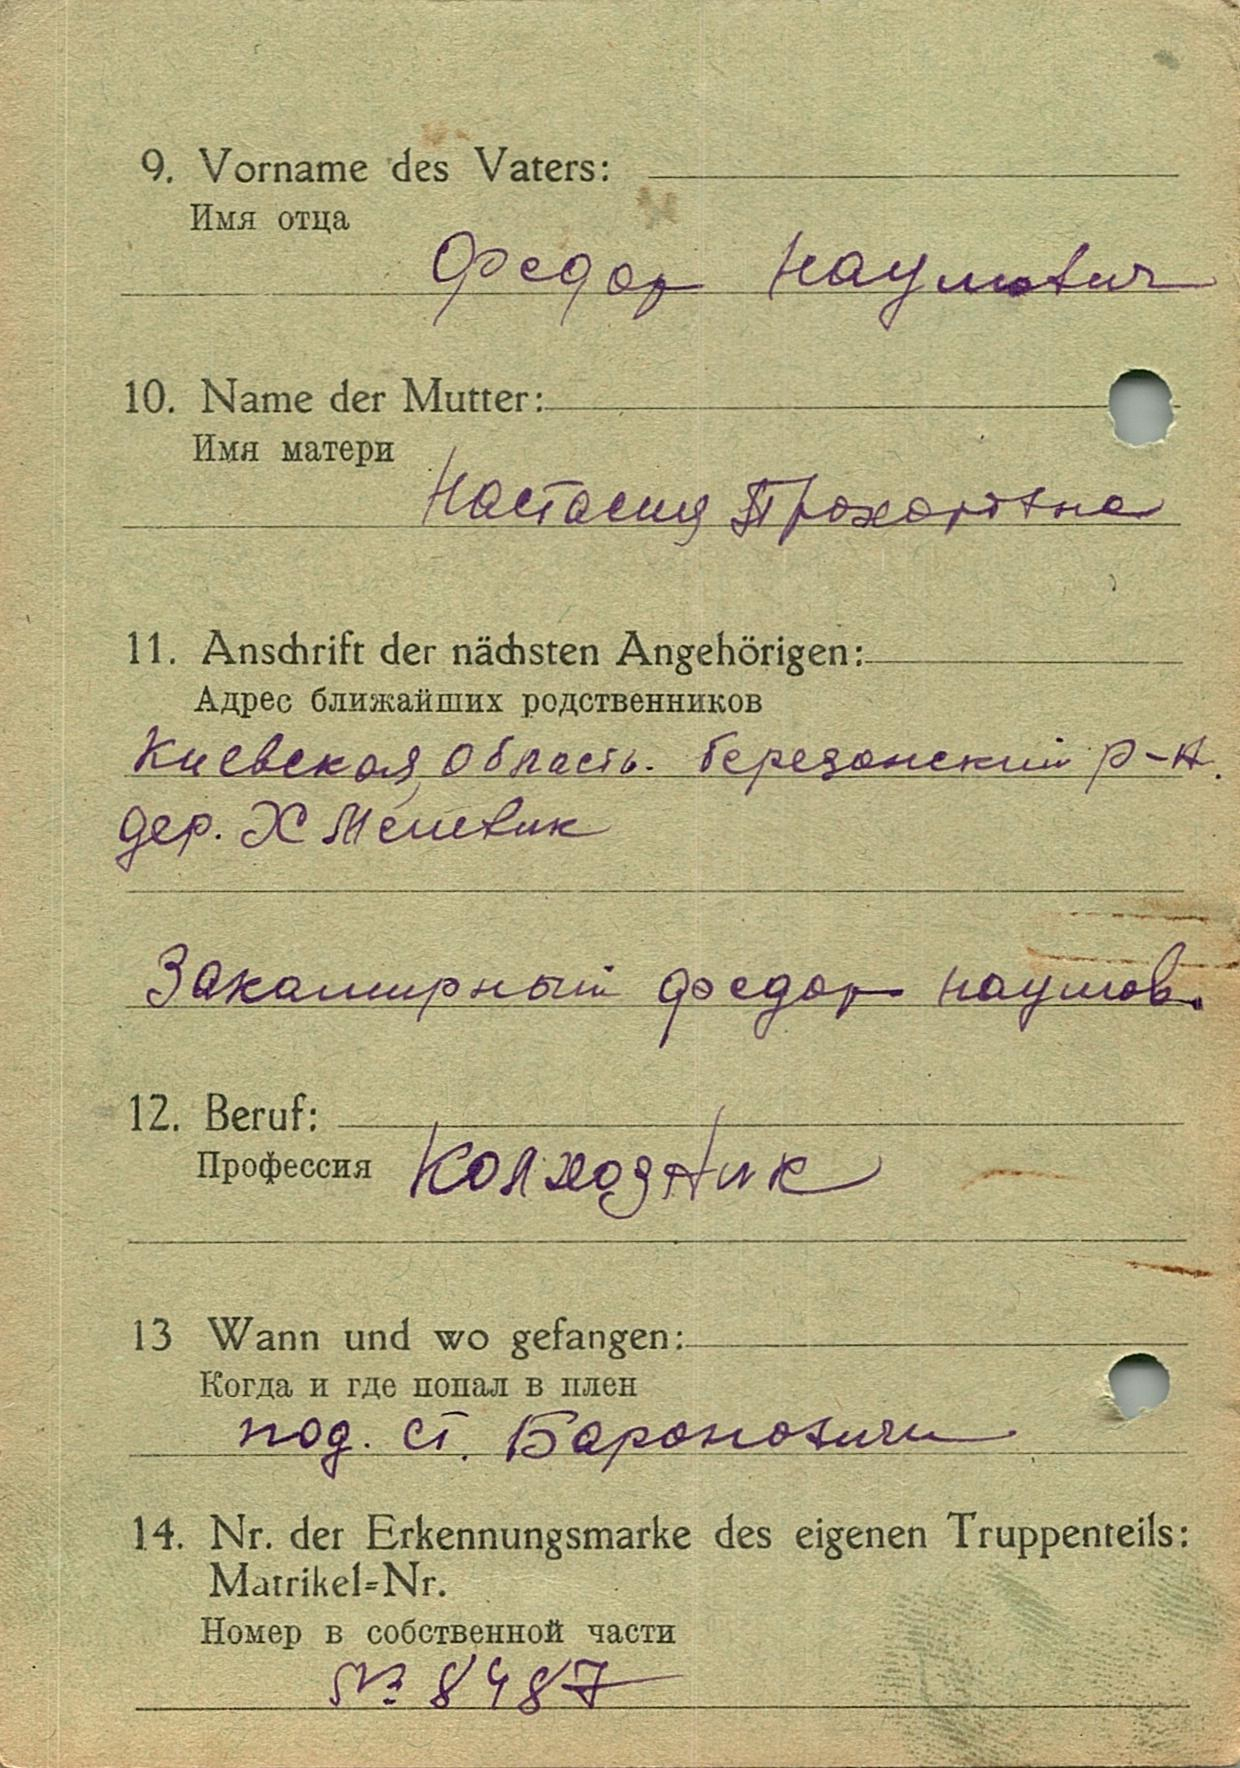 9. Vorname des Vaters:
Имя отца
Федор Наумович
10. Name der Mutter:
Имя матери
Настасия Прохоровна
11. Anschrift der nächsten Angehörigen:
Адрес ближайших родственников
Киевская область. Березанский р-н.
дер.
Федор Наумов.
12. Beruf:
Профессия Колхозник
13 Wann und wo gefangen:
Когда и где попал в плен
под. ст. Бароновичи
14. Nr. der Erkennungsmarke des eigenen Truppenteils:
Matrikel=Nr.
Номер в собственной части
№ 8487